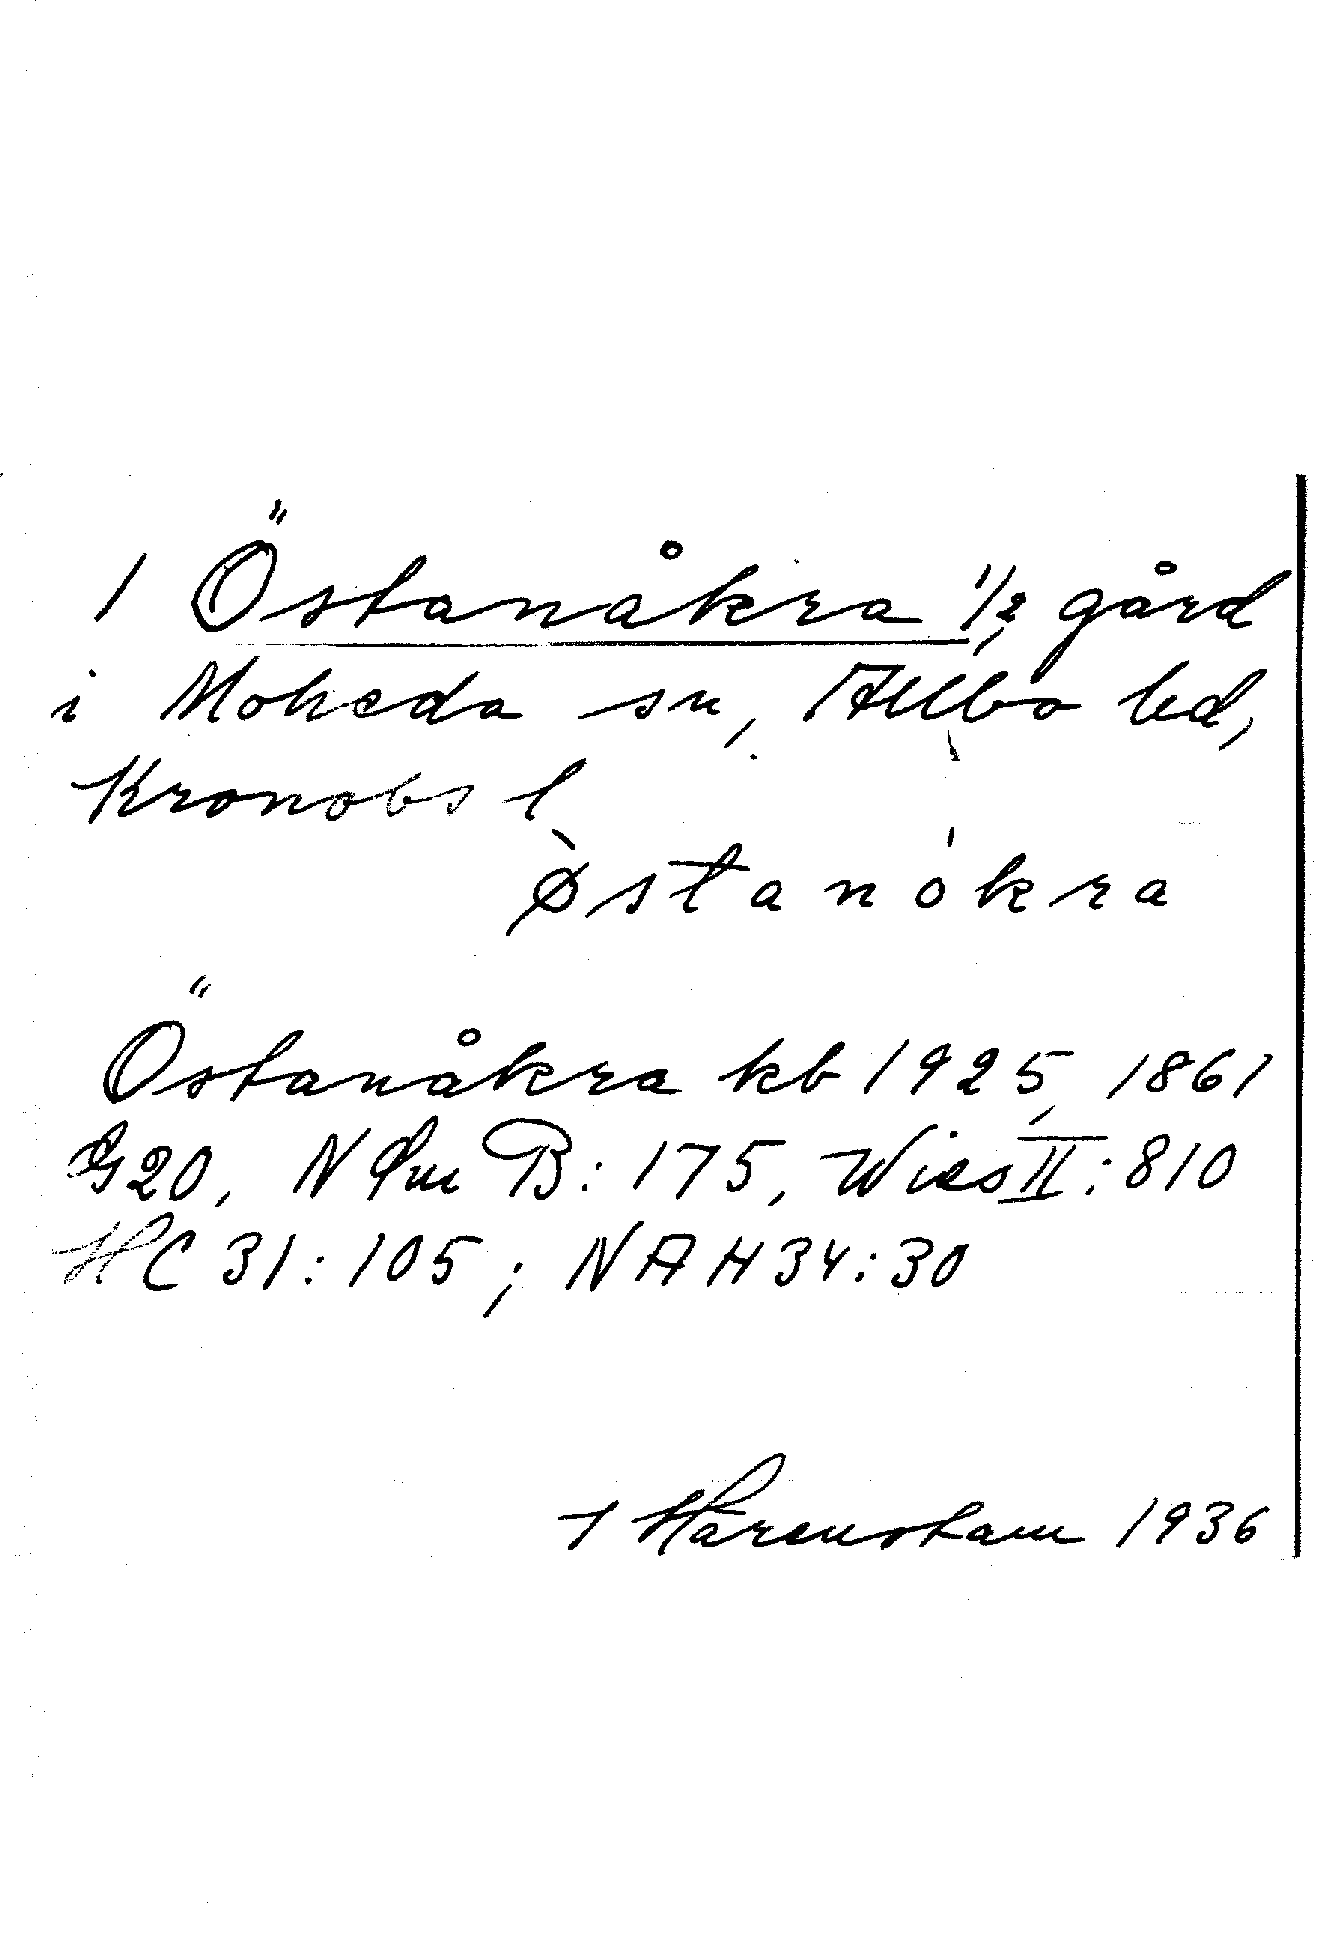 1 Östanåkra 1/2, gård
i Moheda sn, Allbo hd,
Kronobs l
Østanokra
Östanåkra kb 1925, 1861
G20, N Øm B: 175, Wies II: 810
HC 31: 105; NAH 34: 30
I Härenstam 1936